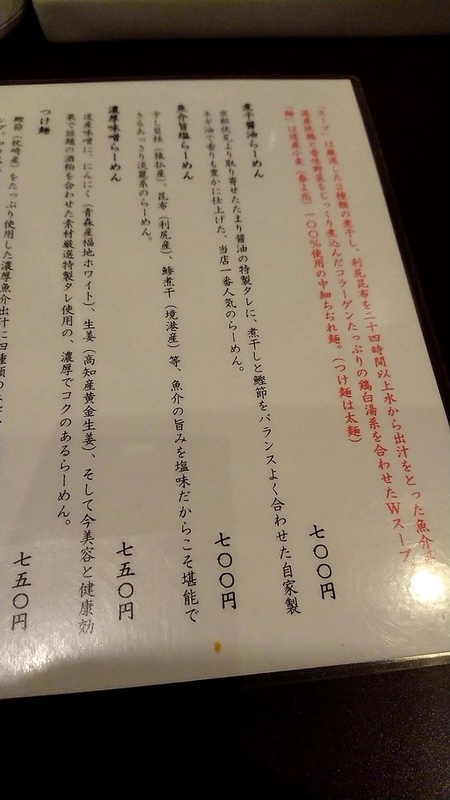 「スープ」は厳選した3種類の煮干し、利尻昆布を二十四時間以上水から出汁をとった魚介
道産鶏と香味野菜をじっくり煮込んだコラーゲンたっぷりの鶏白湯系を合わせたWスープ
「麺」は道産小麦(春よ恋)一〇〇%使用の中細ちぢれ麺。(つけ麺は太麺)
煮干醤油らーめん 七〇〇円
京都伏見より取り寄せたたまり醤油の特製タレに、煮干しと鰹節をバランスよく合わせた自家製
ネギ油で香りも豊かに仕上げた、当店一番人気のらーめん。
魚介旨塩らーめん 七〇〇円
干し貝柱(猿払産)、昆布(利尻産)、鯵煮干(境港産)等、魚介の旨みを塩味だからこそ堪能で
きるあっさり淡麗系のらーめん。
濃厚味噌らーめん 七五〇円
道産味噌に、にんにく(青森産福地ホワイト)、生姜(高知産黄金生姜)、そして今美容と健康効
果で話題の酒粕を合わせた素材厳選特製タレ使用の、濃厚でコクのあるらーめん。
つけ麺 七五〇円
鰹節(枕崎産)をたっぷり使用した濃厚魚介出汁に四種類の